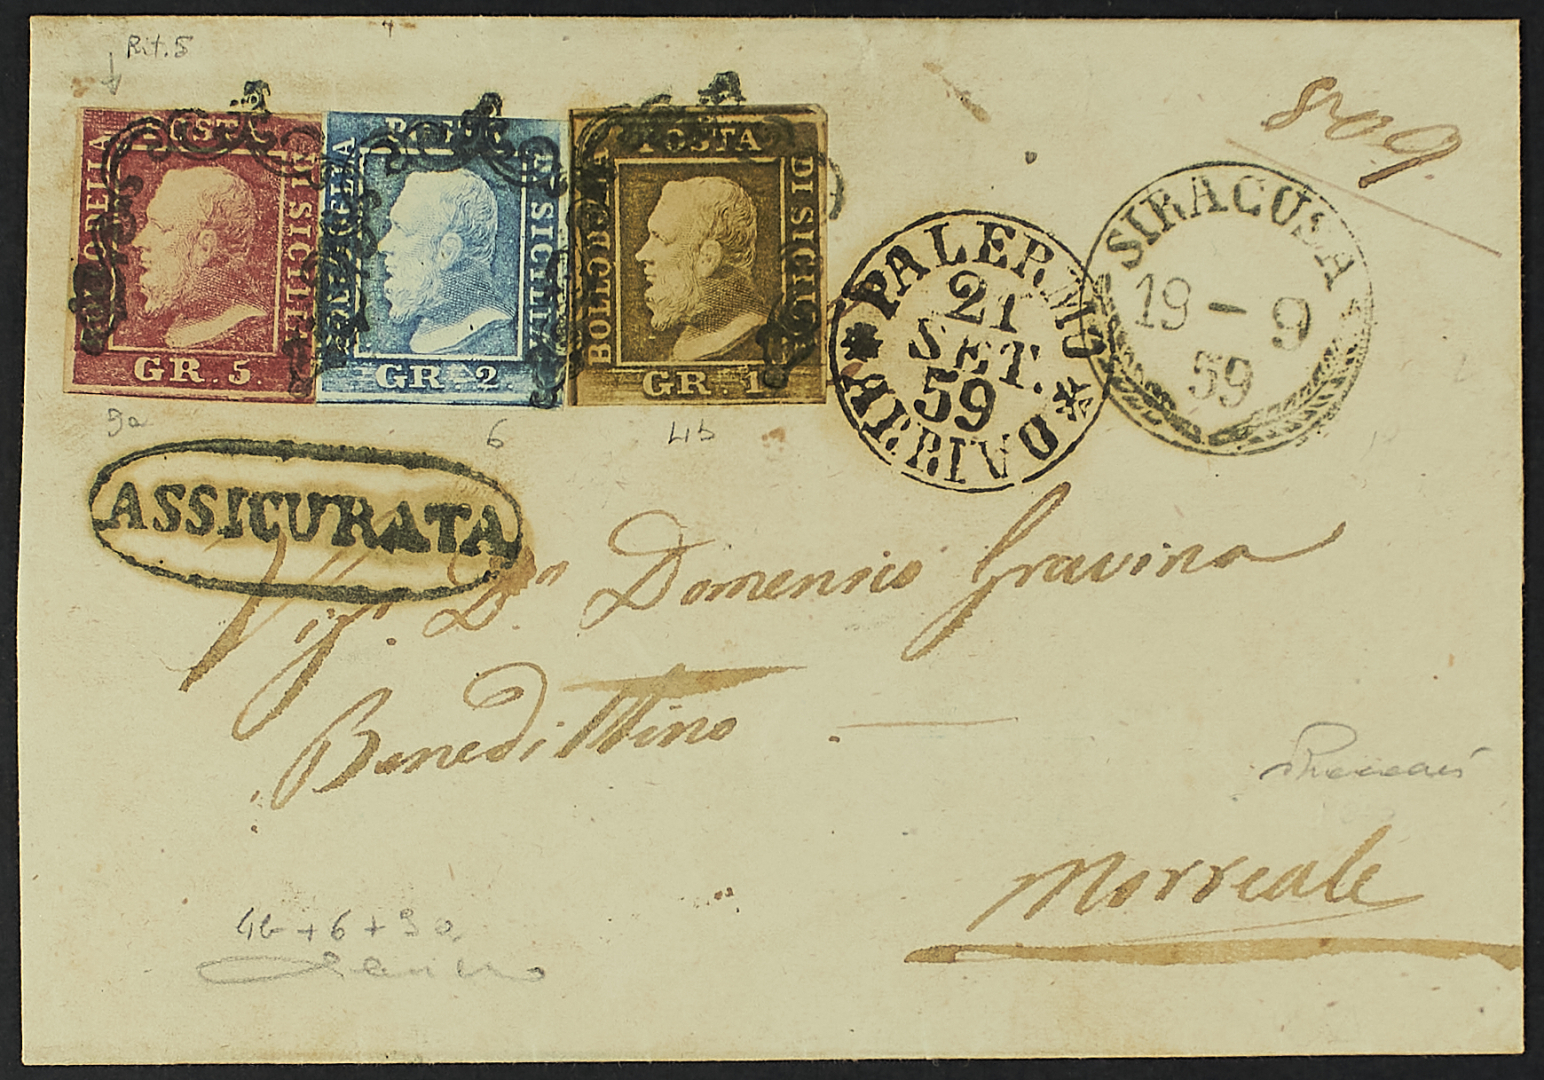 Rit. 5
809
BOLLO DELLA POSTA DI SICILIA
GR. 5.
BOLLO DELLA POSTA DI SICILIA
GR. 2.
BOLLO DELLA POSTA DI SICILIA
GR. 1
PALERMO
21
SET.
59
ARRIBIATA
SIRACUSA
19 - 9
59
9a
6
4b
ASSICURATA
D.n Domenico Gravina
Benedittino
Morreale
4b + 6 + 9a